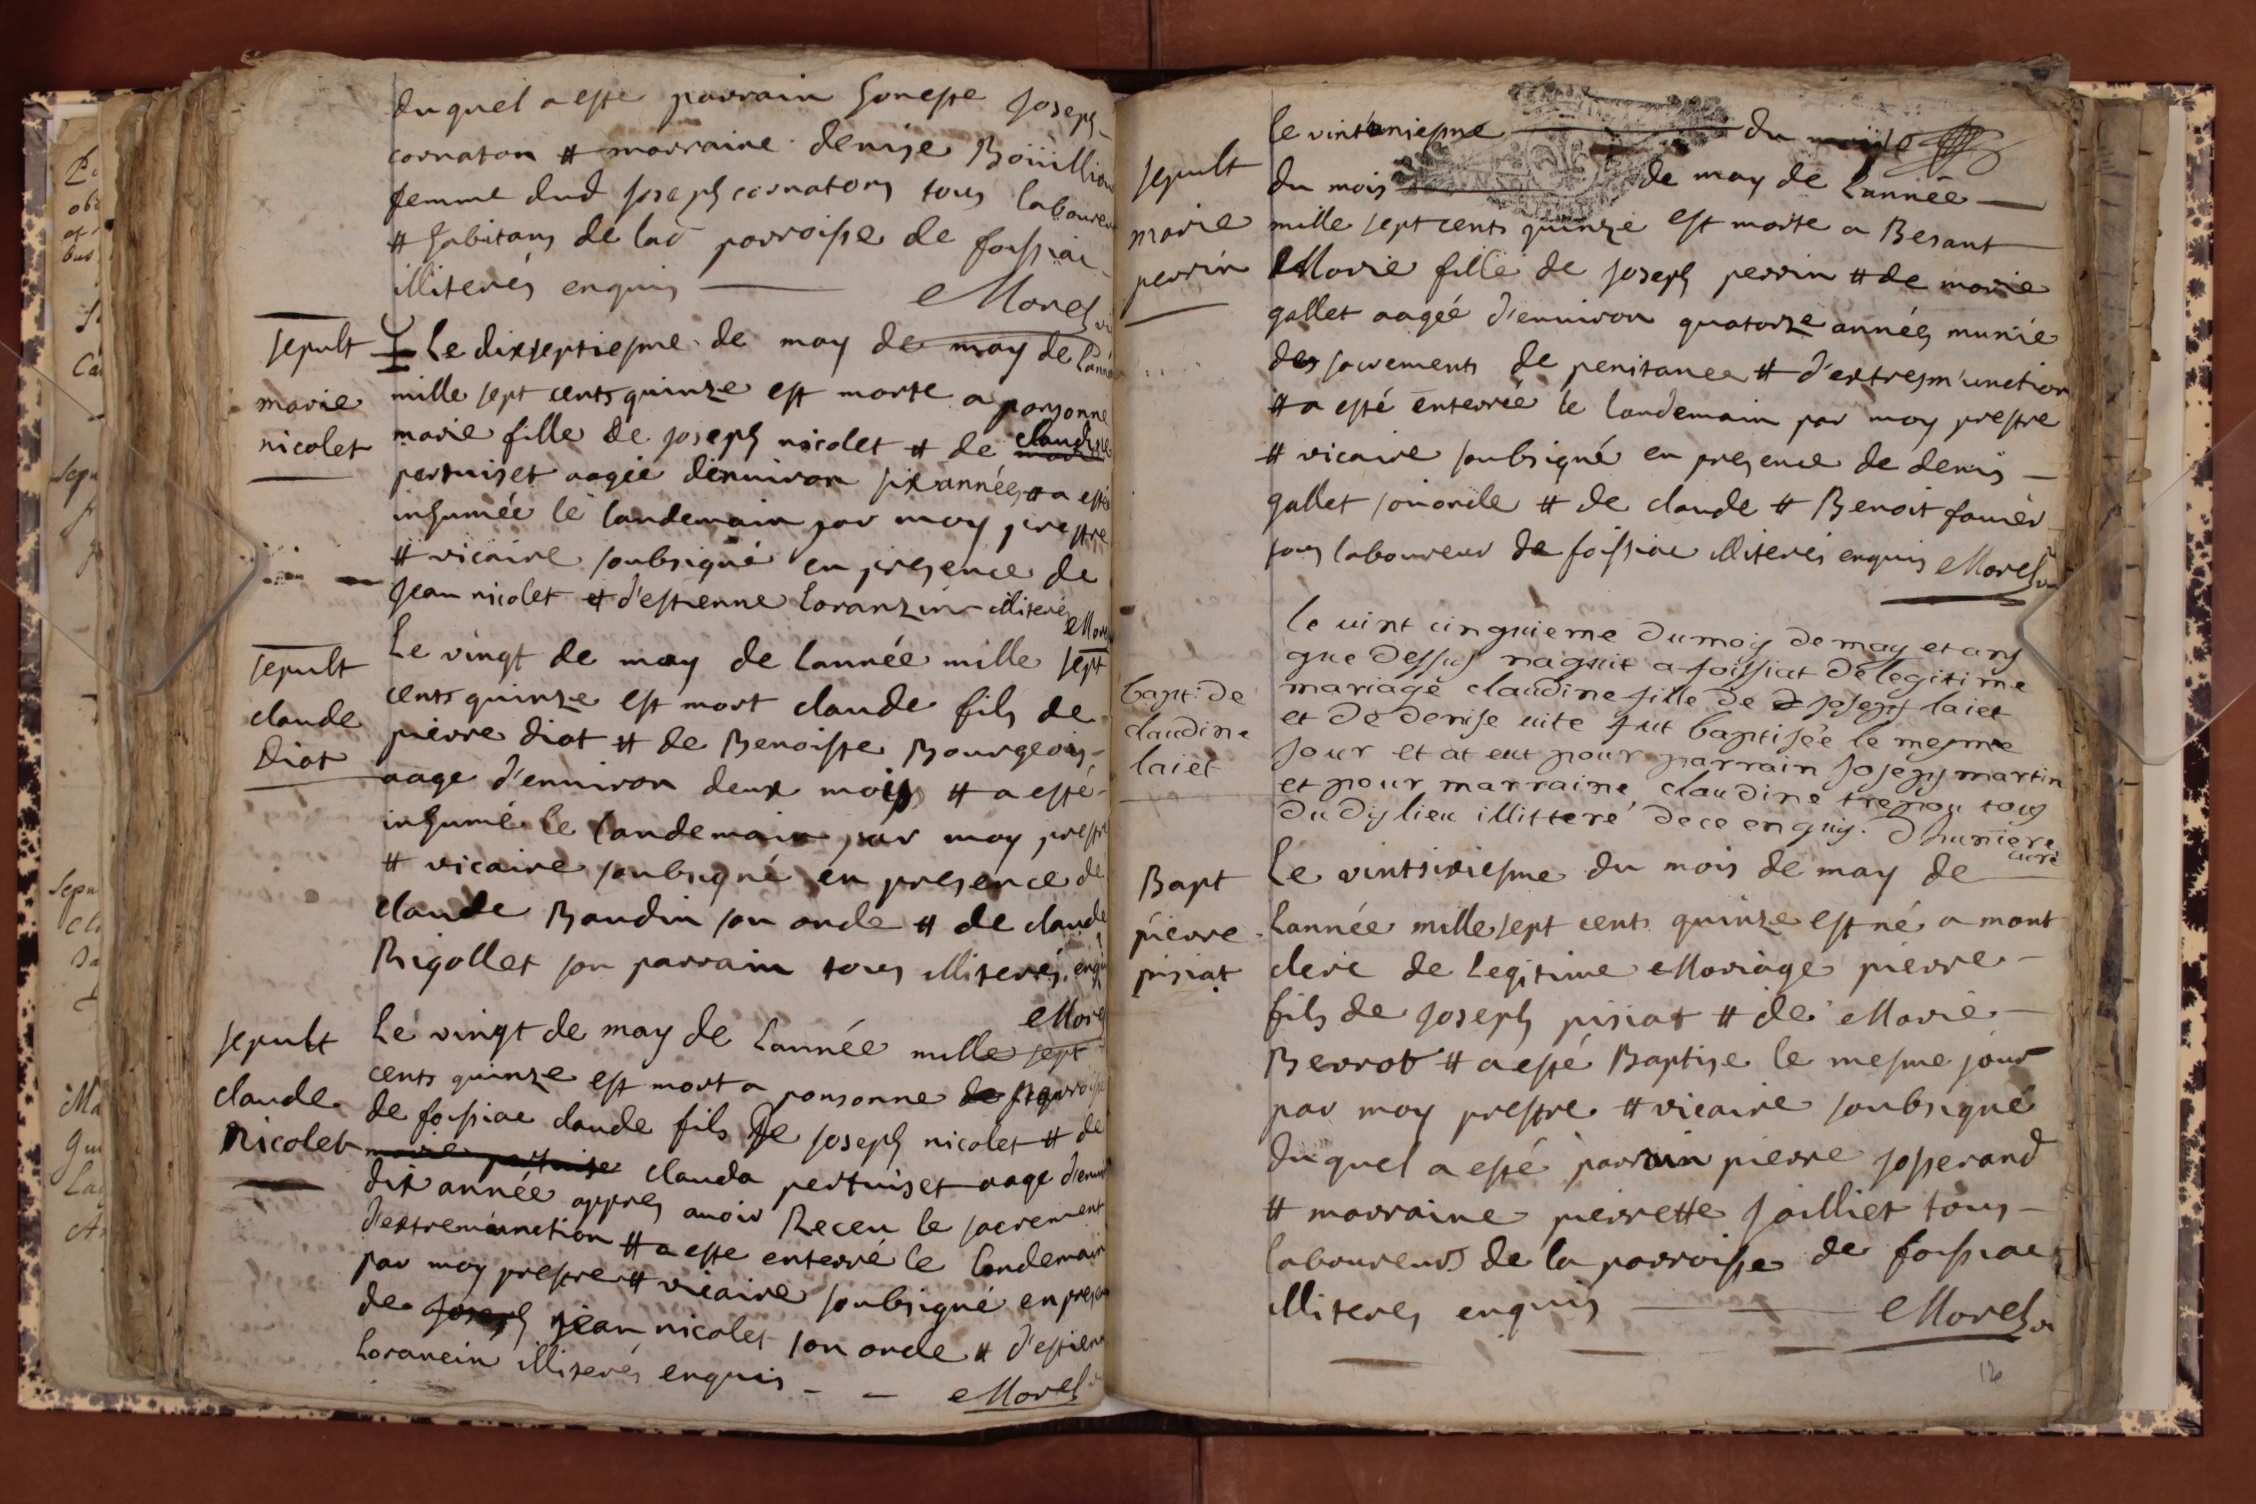 duquel a esté parrain honeste Joseph
cornaton & marraine denise Boüillion
femme dud Joseph cornaton tous laboureur
& habitans de lad parroisse de foissiac
illiterés enquis Morel vi
sepult
marie
nicolet
Le dixseptiesme de may de may de l'anné
mille sept cents quinze est morte a ponsonne
marie fille de Joseph nicolet & de claudine
pertuiset aagée d'enuiron six années & a esté
inhumée le landemain par moy prestre
& vicaire soubsigné en presence de
Jean nicolet & d'estienne loranzin illiteré
Morel
sepult
claude
Diot
Le vingt de may de lannée mille sept
cents quinze est mort claude fils de
pierre diot & de Benoiste Bourgeois
aage d'enuiron deux mois & a esté
inhumé le landemain par moy prestre
& vicaire soubsigné en presence de
claude Baudin son oncle & de claude
Rigollet son parrain tous illiterés enquis
Morel
sepult
claude
Nicolet
Le vingt de may de Lannée mille sept
cents quinze est mort a ponsonne de parroisse
de foissiac claude fils de Joseph nicolet & de
marie pertuise clauda pertuiset aage d'enui
dix année appres auoir Receu le sacrement
d'extremeunction & a esté enterré le landemain
par moy prestre & vicaire soubsigné en presen
de Joseph jean nicolet son oncle & d'estienn
Lorancin illiterés enquis
Morel v
sepult
marie
perrin
le vinteuniesme du
du mois de may de Lannée
mille sept cents quinze est morte a Besant
Marie fille de Joseph perrin & de marie
gallet aagée d'enuiron quatorze années munie
des sacrements de penitance & d'extresm'unction
& a esté enterrée le landemain par moy prestre
& vicaire soubsigné en presence de denis
gallet son oncle & de claude & Benoit fauier
tous laboureur de foissiac illiterés enquis Morel vi
bapt: de
claudine
laiet
le uint cinquieme du moÿs de may et ans
que dessus naquit a foissiat de legitime
mariage claudine fille de Joseph laiet
et de denise uite fut baptisée le mesme
jour et at eut pour parrain Joseph martin
et pour marraine claudine trepou tous
du dis lieu illitteré de ce enquis. Dhumiere
curé
Bapt
pierre
pisiat
Le vintsixiesme du mois de may de
Lannée mille sept cents quinze est né a mont
cleric de Legitime Mariage pierre
fils de Joseph pisiat & de Marie
Berrod & a esté Baptise le mesme jour
par moy prestre & vicaire soubsigné
duquel a esté parrain pierre Josserand
& marraine pierrette Jailliet tous
laboureurs de la parroisse de foissiac
illiteres enquis Morel vi